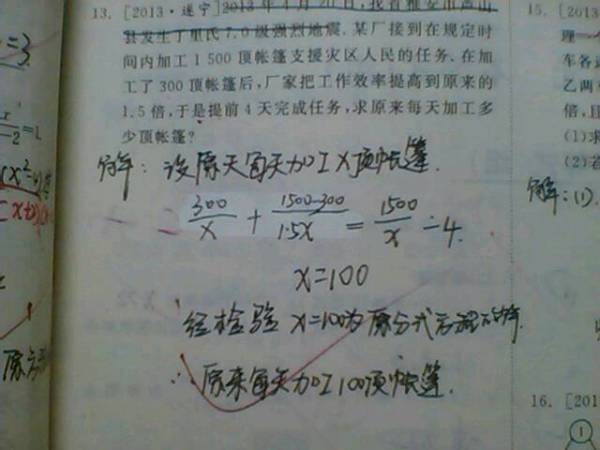 13. [2013·遂宁]2013年4月20日,我省雅安市芦山
县发生了里氏7.0级强烈地震.某厂接到在规定时
间内加工1500顶帐篷支援灾区人民的任务.在加
工了300顶帐篷后,厂家把工作效率提高到原来的
1.5倍,于是提前4天完成任务,求原来每天加工多
少顶帐篷?
解:设原天每天加工x顶帐篷.
300/x + (1500-300)/1.5x = 1500/x - 4.
x=100
经检验 x=100为原分式方程的解.
∴原来每天加工100顶帐篷.
=3
-2=1
15. [2013
理一个
车各运
乙两车
倍,且
(1)求
(2)若
解:(1).
16. [201
1